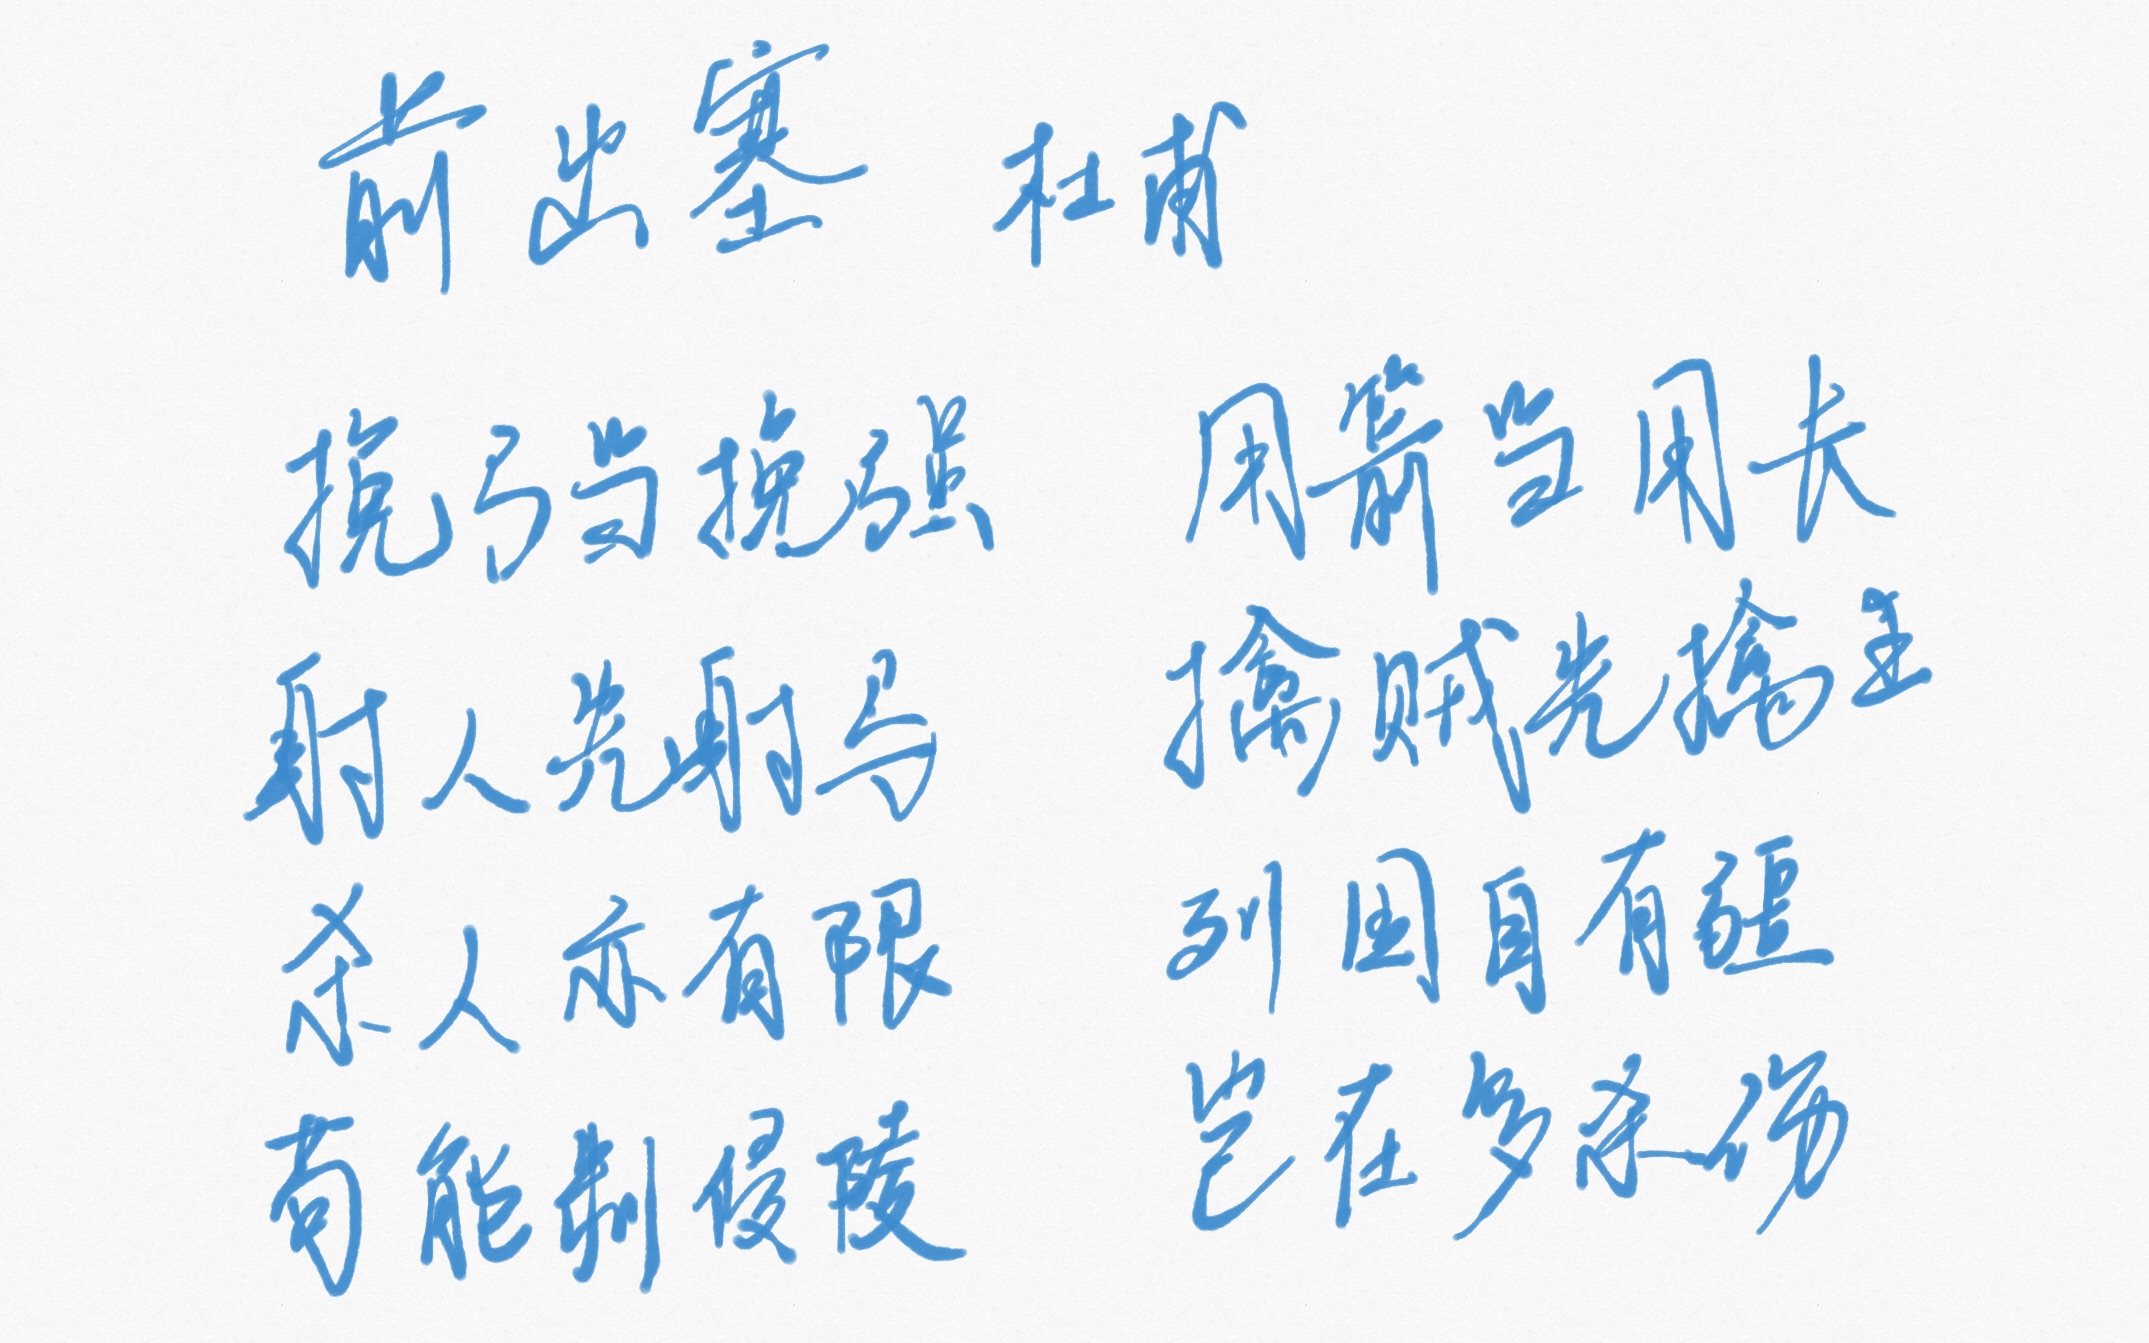 前出塞 杜甫
挽弓当挽强 用箭当用长
射人先射马 擒贼先擒王
杀人亦有限 列国自有疆
苟能制侵陵 岂在多杀伤